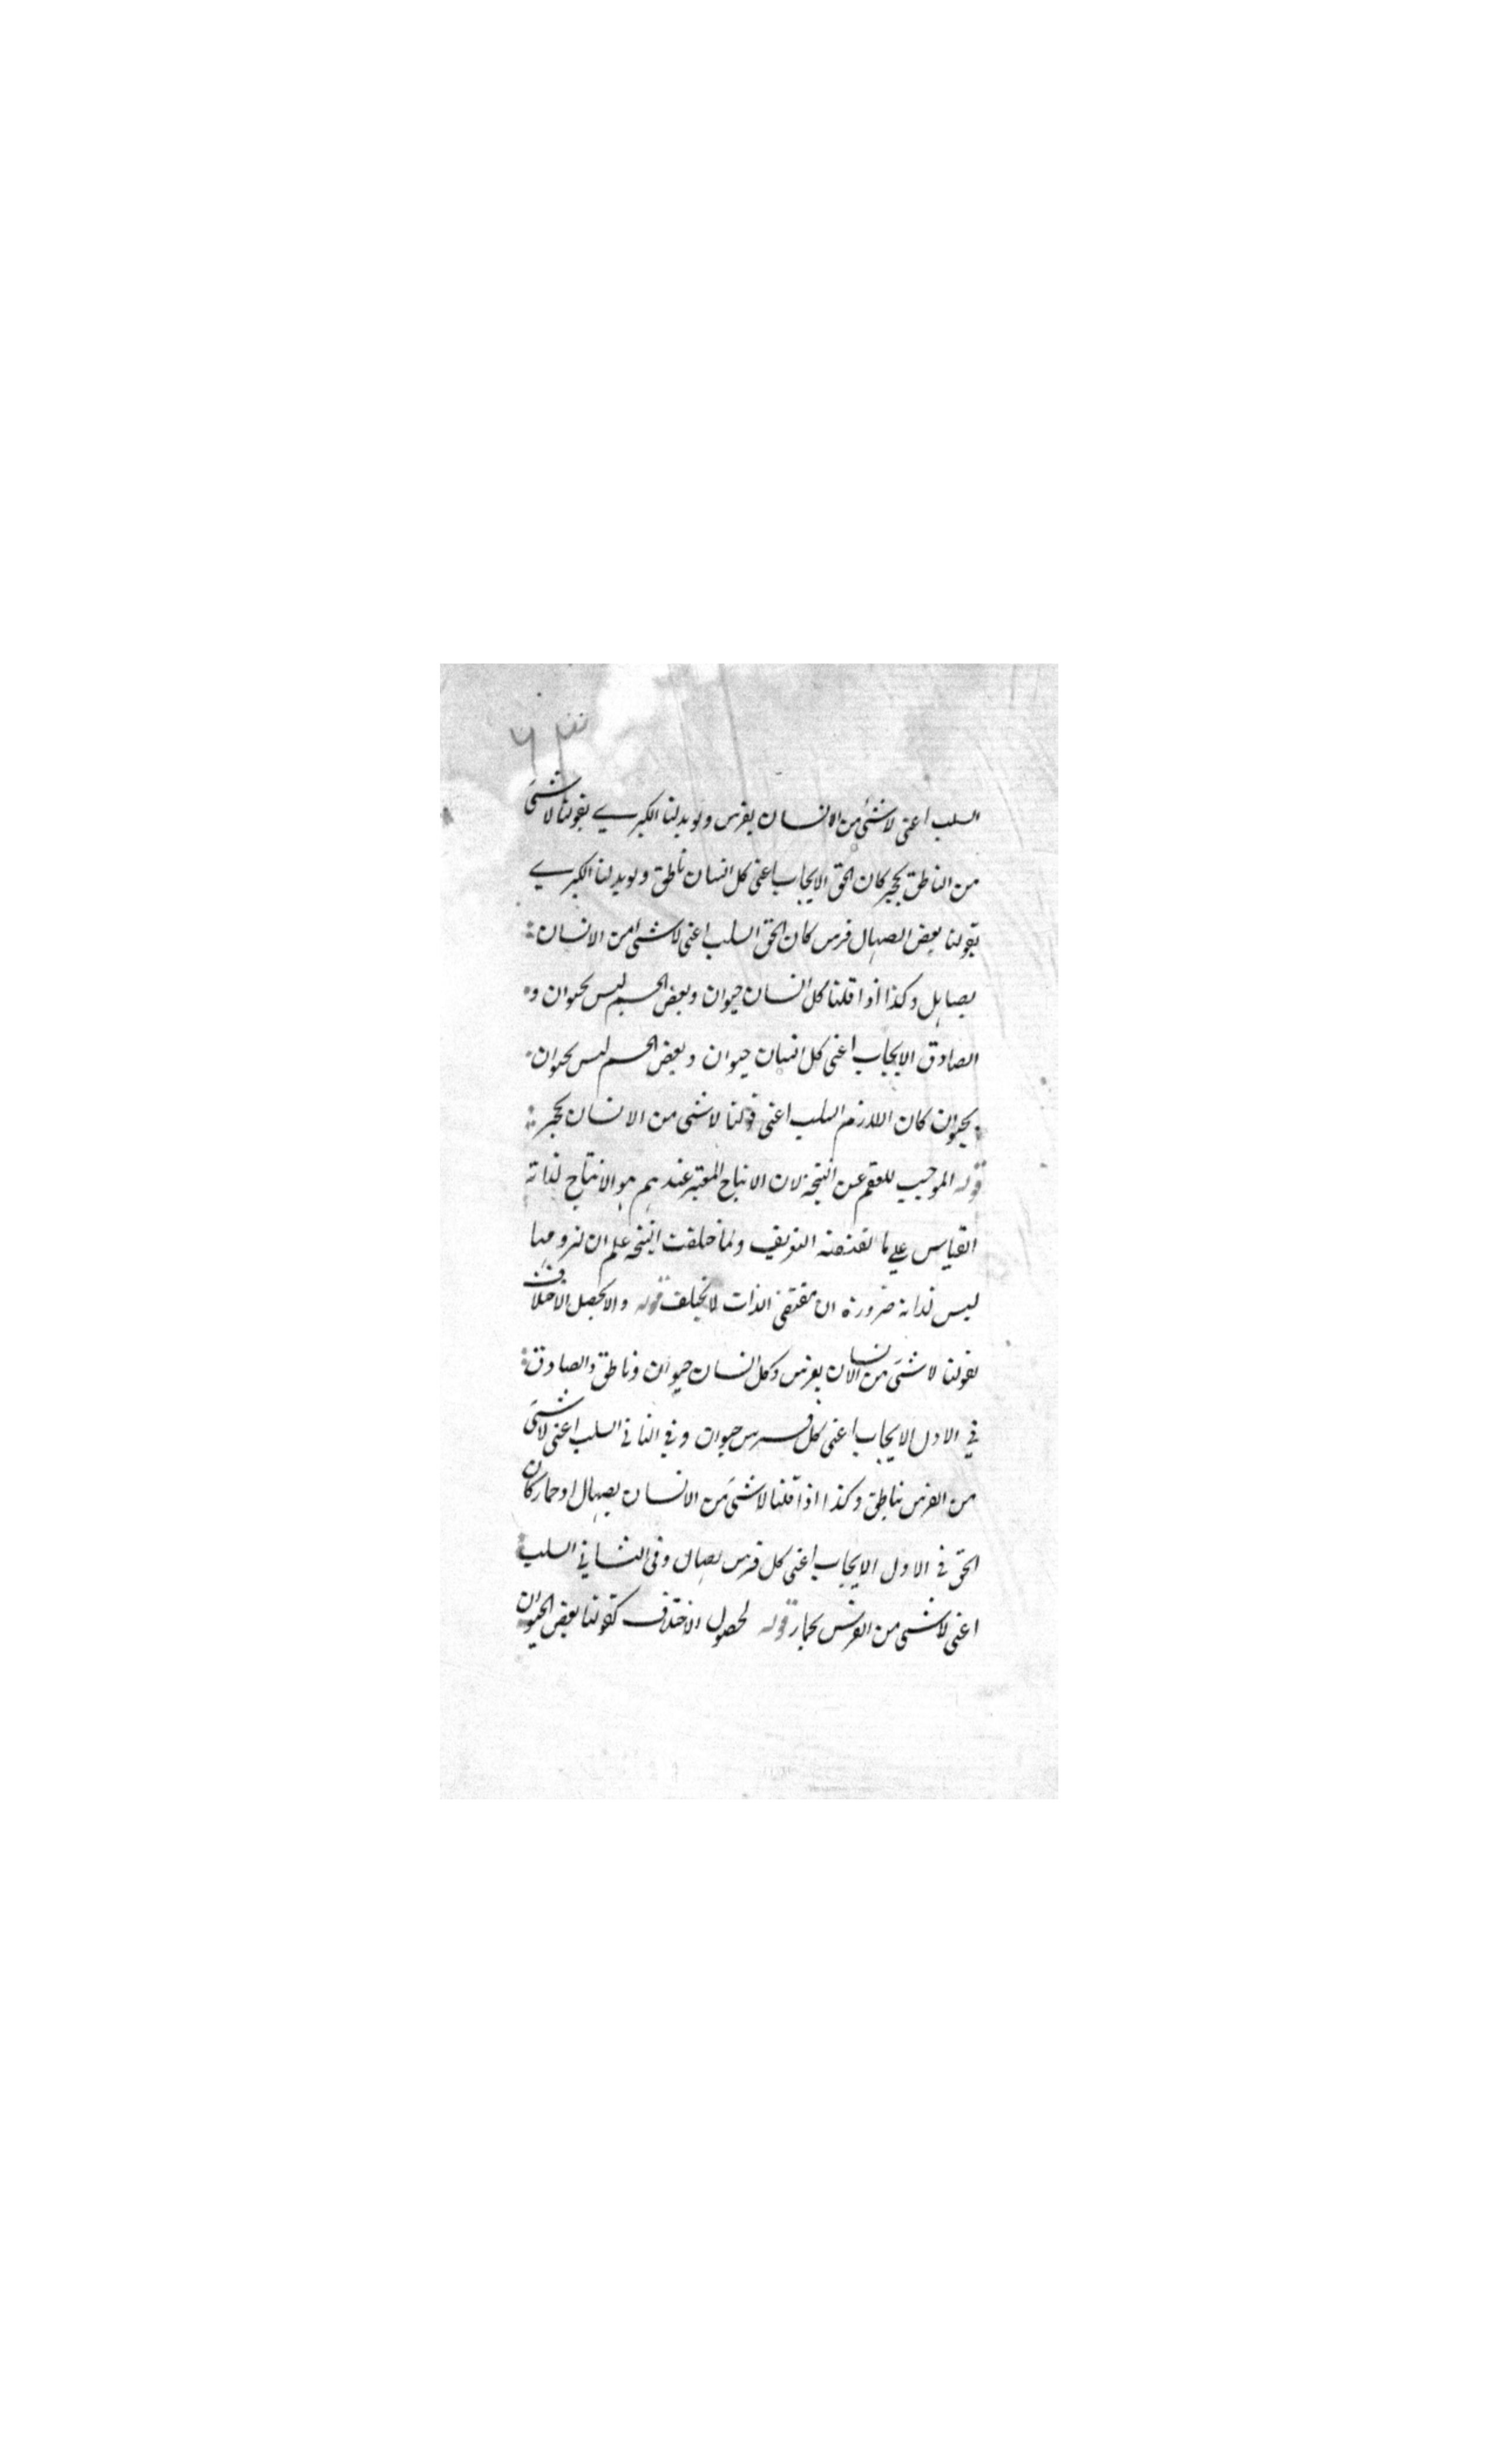 السلب اعنى لاشئ من الانسان بفرس ولو بدلنا الكبرے بقولنا لا شئ
من الناطق بحجر كان الحق الايجاب اعنى كل انسان ناطق ولو بدلنا الكبرے
بقولنا بعض الصهال فرس كان الحق السلب اعنى لاشئ من الانسان
بصاهل وكذا اذا قلنا كل انسان حيوان وبعض الجسم ليس بحيوان و
الصادق الايجاب اعنى كل انسان حيوان وبعض الجسم ليس بحيوان
بحيوان كان اللازم السلب اعنى قولنا لاشئ من الانسان بحجر
قوله الموجب للعقم عن النتيجة لان الانتاج المعتبر عندهم هو الانتاج لذاته
القياس على ما تقتضيه التعريف ولما خلقت النتيجة علم ان لزومها
ليس لذاته ضرورة ان مقتضى الذات لا يختلف قوله والا لحصل الاختلاف
بقولنا لا شئ من الانسان بفرس وكل انسان حيوان وناطق والصادق
فى الاول الايجاب اعنى كل فرس حيوان وفى الثانى السلب اعنى لا شئ
من الفرس بناطق وكذا اذا قلنا لا شئ من الانسان بصهال او حمار كان
الحق فى الاول الايجاب اعنى كل فرس صهال وفى الثانى السلب
اعنى لا شئ من الفرس بحمار قوله لحصول الاختلاف كقولنا بعض الحيوان